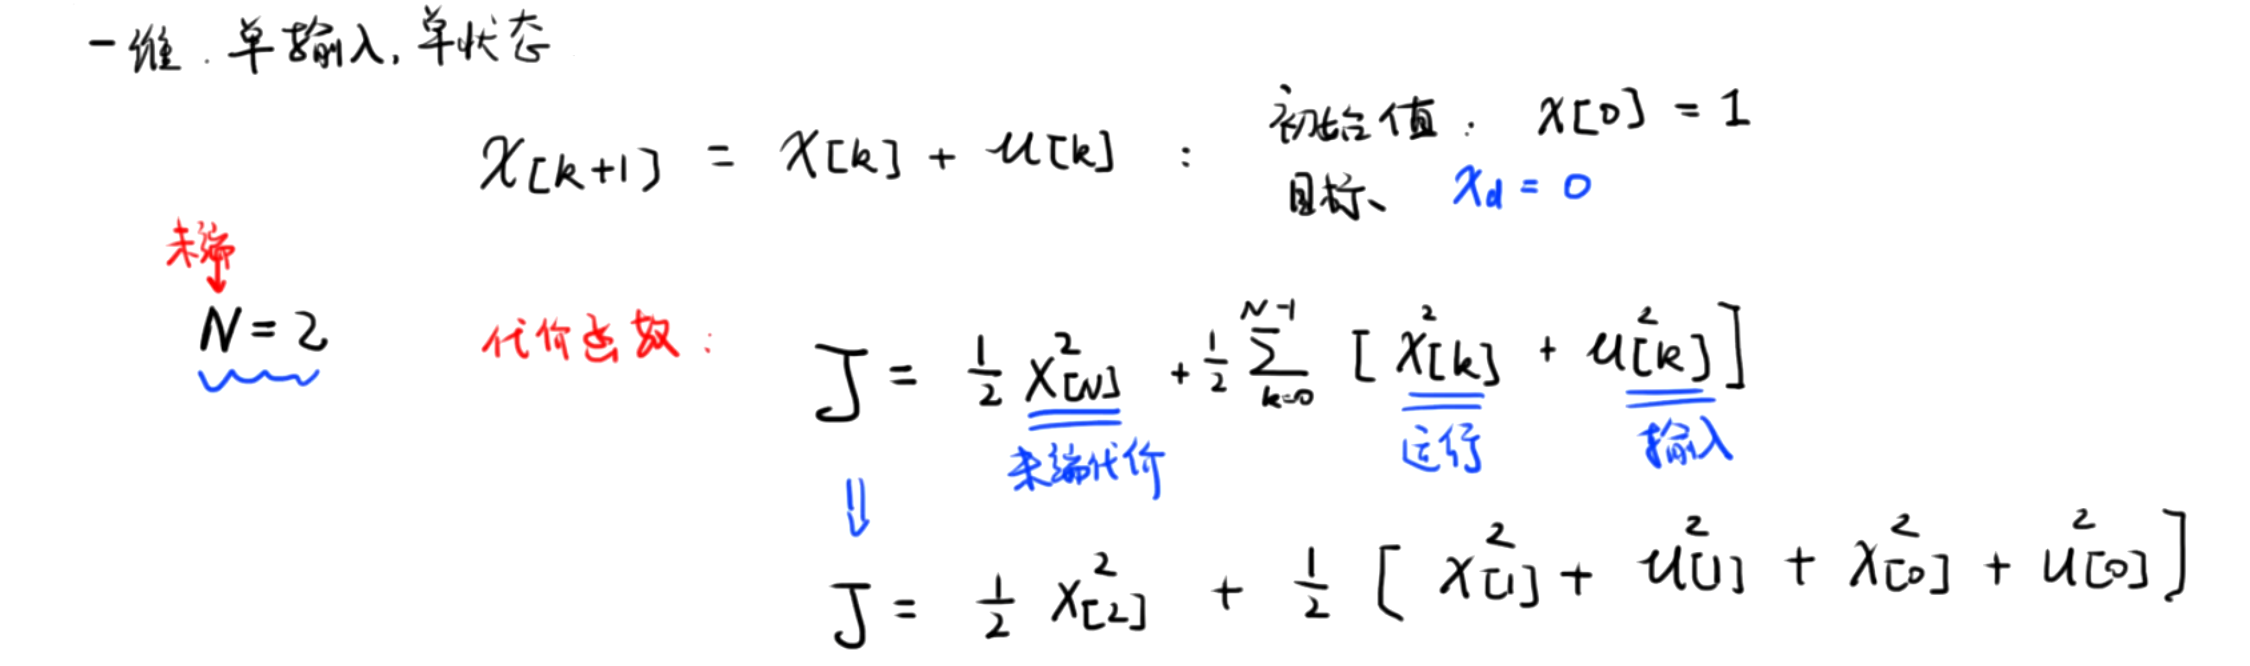 一维. 单输入, 单状态
x[k+1] = x[k] + u[k] : 初始值: x[0] = 1
目标、 x_d = 0
末端
N = 2 代价函数: J = 1/2 x²[N] + 1/2 Σ_{k=0}^{N-1} [x²[k] + u²[k]]
末端代价 运行 输入
⇓
J = 1/2 x²[2] + 1/2 [x²[1] + u²[1] + x²[0] + u²[0]]